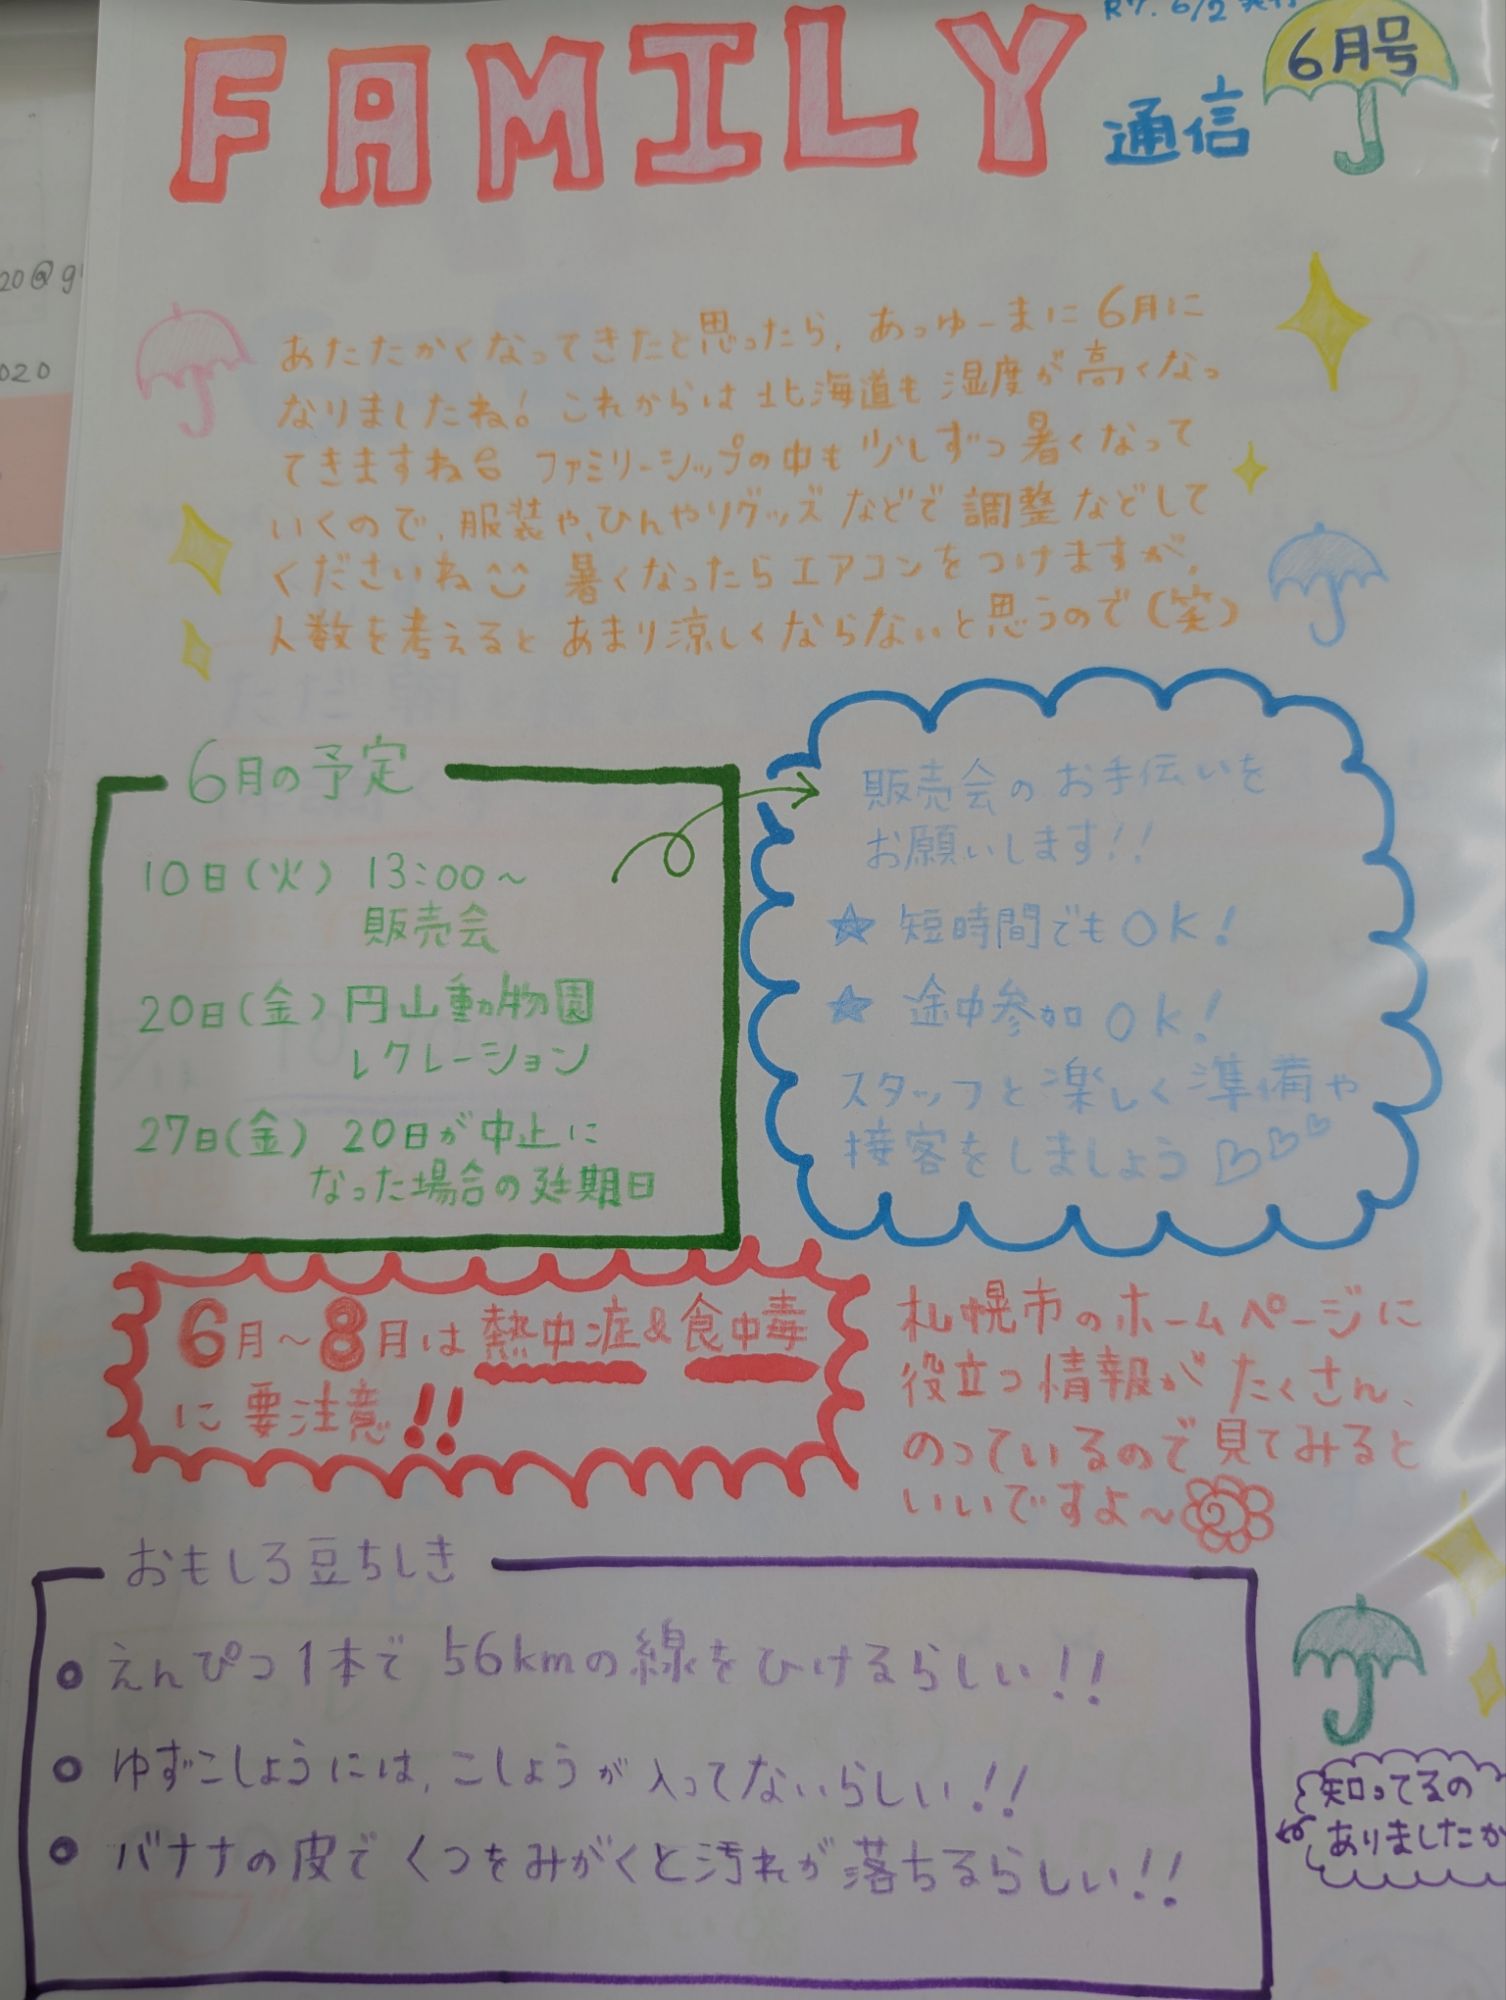 R7. 6/2 発行
6月号
FAMILY
通信
20@g
020
あたたかくなってきたと思ったら、あっゆーまに6月に
なりましたね! これからは北海道も湿度が高くなっ
てきますね ファミリーシップの中も少しずつ暑くなって
いくので、服装や、ひんやりグッズなどで調整などして
くださいね 暑くなったらエアコンをつけますが、
人数を考えるとあまり涼しくならないと思うので(笑)
6月の予定
10日(火) 13:00~
販売会
20日(金) 円山動物園
レクレーション
27日(金) 20日が中止に
なった場合の延期日
販売会のお手伝いを
お願いします!!
★ 短時間でもOK!
★ 途中参加OK!
スタッフと楽しく準備や
接客をしましょう
6月~8月は熱中症&食中毒
に要注意!!
札幌市のホームページに
役立つ情報がたくさん、
のっているので見てみると
いいですよ~
おもしろ豆ちしき
• えんぴつ1本で56kmの線をひけるらしい!!
• ゆずこしょうには、こしょうが入ってないらしい!!
• バナナの皮でくつをみがくと汚れが落ちるらしい!!
知ってるの
ありましたか